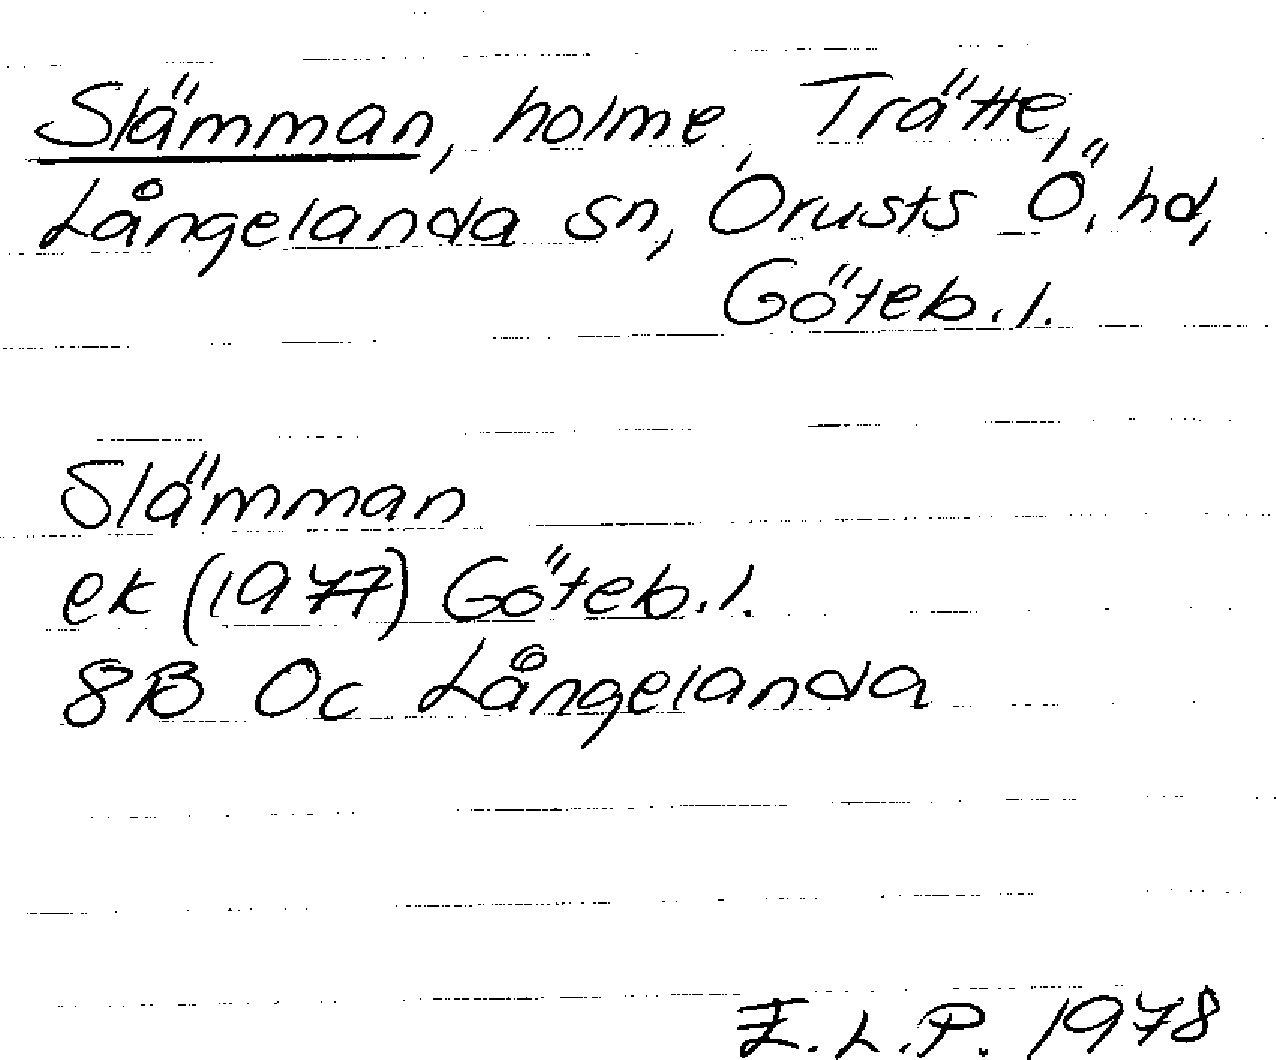 Slämman, holme, Trätte,
Långelanda sn, Orusts Ö. hd,
Göteb. l.
Slämman
ek (1977) Göteb. l.
8B 0c Långelanda
E.L.P. 1978